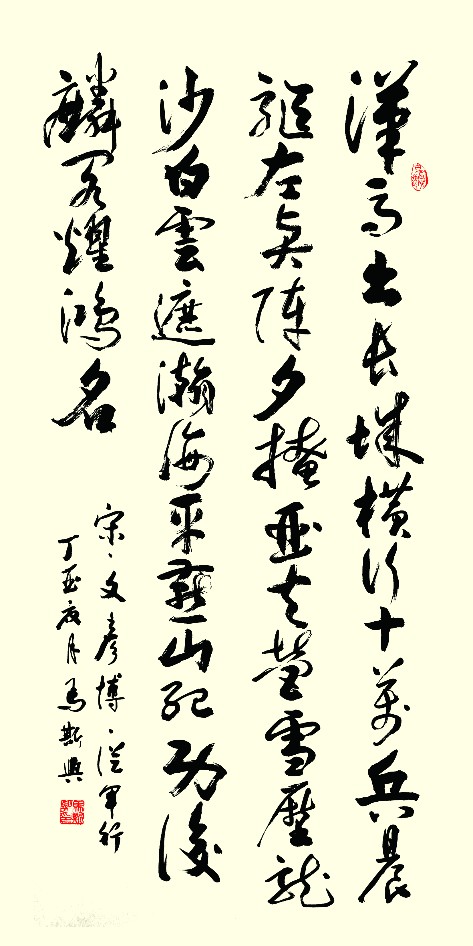 漢馬出長城橫行十萬兵晨
驅左賢陣夕掩亞夫營雪壓龍
沙白雲遮瀚海平燕山紀功後
麟閣燿鴻名
宋、文彥博、從軍行
丁亥夏月馬斯興